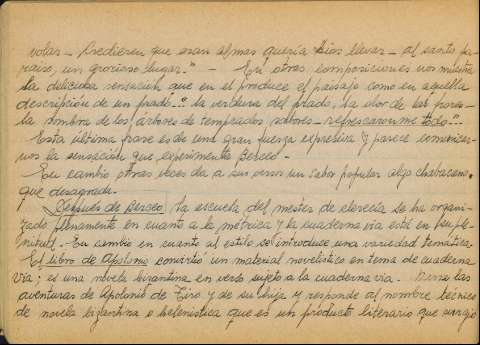 volar – Credieren que eran almas queria Dios llevar – al santo pa-
raiso, un glorioso lugar." – En otras composiciones nos muestra
la deliciosa sensación que en el produce el paisaje como en aquella
descripción de un prado: "la verdura del prado, la olor de las flores –
la sombra de los arbores de temprados sabores – refrescaronme todo".
Esta última frase es de una gran fuerza expresiva y parece comunicar-
nos la sensación que experimenta Berceo –
En cambio otras veces da a sus versos un sabor popular algo chabacano
que desagrada.
Después de Berceo, la escuela del mester de clerecía se ha organi-
zado plenamente en cuanto a la métrica y la cuaderna via está en su ple-
nitud. En cambio en cuanto al estilo se introduce una variedad temática.
El libro de Apolonio convirtió un material novelístico en tema de cuaderna
via; es una novela bizantina en verso sujeto a la cuaderna via. – las
aventuras de Apolonio de Tiro y de su hija y responde al nombre técnico
de novela bizantina o helenistica que es un producto literario que surgio